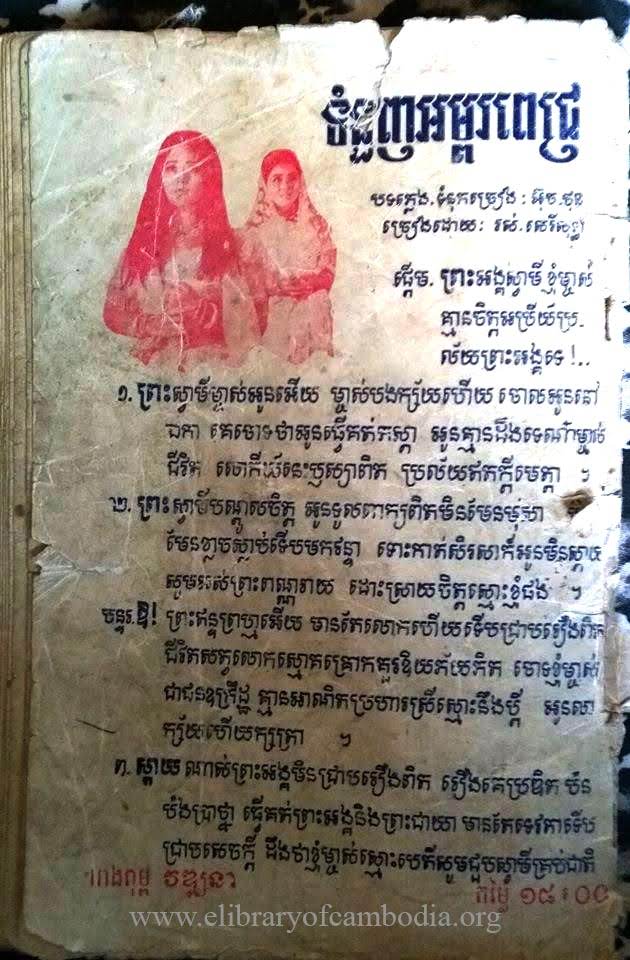 ទំនួញអម្ពរពេជ្រ
បទភ្លេង.ទំនុកច្រៀង : អ៊ុច.ជុន
ច្រៀងដោយៈ រស់.សេរីសុទ្ធា
ផ្ដើម. ព្រះអង្គស្វាមី ខ្ញុំម្ចាស់
គ្មានចិត្តអប្រីយ៍ប្រ-
ល័យព្រះអង្គទេ !..
១. ព្រះស្វាមីម្ចាស់អូនអើយ ម្ចាស់បងក្ស័យហើយ ចោលអូននៅ
ឯកា គេចោទថាអូនធ្វើគត់ភស្ដា អូនគ្មានដឹងទេណាម្ចាស់
ជីវិត លោកីយ៍នេះឫស្យាពិត ប្រល័យឥតក្ដីមេត្តា ។
២. ព្រះស្វាមីបណ្ដូលចិត្ត អូនទូលពាក្យពិតមិនមែនមុសា
មែនខ្លាចស្លាប់ទើបមកឥន្ទា ទោះកាត់សិរសាក៏អូនមិនស្ដាយ
សូមអស់ព្រះពណ្ណរាយ ដោះស្រាយចិត្តស្មោះខ្ញុំផង ។
បន្ទរ.ឱ! ព្រះឥន្ទព្រហ្មអើយ មានតែលោកហើយទើបជ្រាបរឿងពិត
ជីវិតសត្វលោកស្មោគគ្រោកគួរឱ្យភ័យភិត ចោទខ្ញុំម្ចាស់
ជាជនឧក្រិដ្ឋ គ្មានអាណិតប្រហារស្រីស្មោះនឹងប្ដី អូនលា
ក្ស័យហើយក្សត្រា ។
៣. ស្ដាយ ណាស់ព្រះអង្គមិនជ្រាបរឿងពិត រឿងគេប្រឌិត ប៉ន
ប៉ងប្រាថ្នា ធ្វើគត់ព្រះអង្គនិងព្រះជាយា មានតែទេវតាទើប
ជ្រាបសេចក្ដី ដឹងថាខ្ញុំម្ចាស់ស្មោះបេតីសូមជួបស្វាមីគ្រប់ជាតិ
រោងពុម្ព វឌ្ឍនា
តម្លៃ ១៨៛០០
www.elibraryofcambodia.org